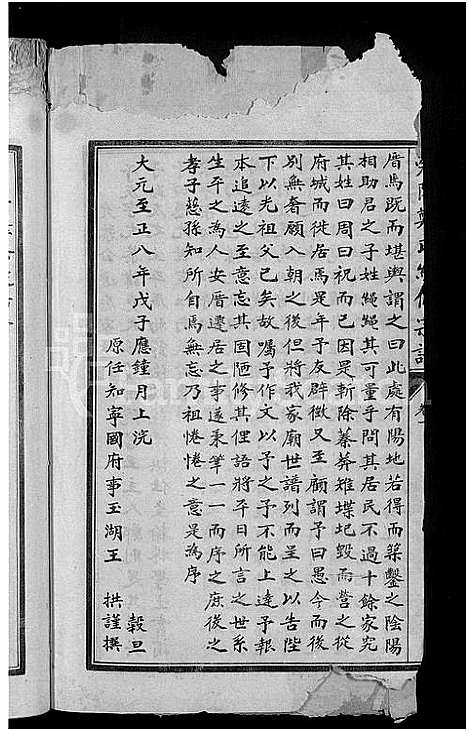 厝馬既而堪輿謂之曰此處有陽地若得而築鑿之陰陽
相助君之子姓繩繩其可量乎問其居民不過十餘家究
其姓曰周曰祝而已因是斬除蓁莽雉堞圮毀而營之從
府城而徙居馬是年予友辟徵又至顧謂予曰愚今而後
別無奢願入朝之後但將我家廟世譜列而呈之以告陛
下以光祖父已矣故囑予作文以予之予不能上達予報
本追遠之至意忘其固陋修其俚語將平日所言之世系
生平之為人安厝遷居之事遂秉筆一一而序之庶後之
孝子慈孫知所自焉無忘乃祖惓惓之意是為序
大元至正八年戊子應鐘月上浣 穀旦
原任知寧國府事玉湖王 拱謹撰